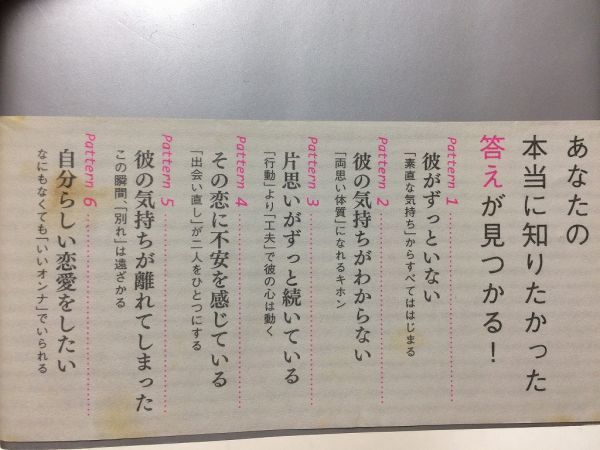 あなたの
本当に知りたかった
答えが見つかる！
Pattern 1
彼がずっといない
「素直な気持ち」からすべてははじまる
Pattern 2
彼の気持ちがわからない
「両思い体質」になれるキホン
Pattern 3
片思いがずっと続いている
「行動」より「工夫」で彼の心は動く
Pattern 4
その恋に不安を感じている
「出会い直し」が二人をひとつにする
Pattern 5
彼の気持ちが離れてしまった
この瞬間、「別れ」は遠ざかる
Pattern 6
自分らしい恋愛をしたい
なにもなくても「いいオンナ」でいられる